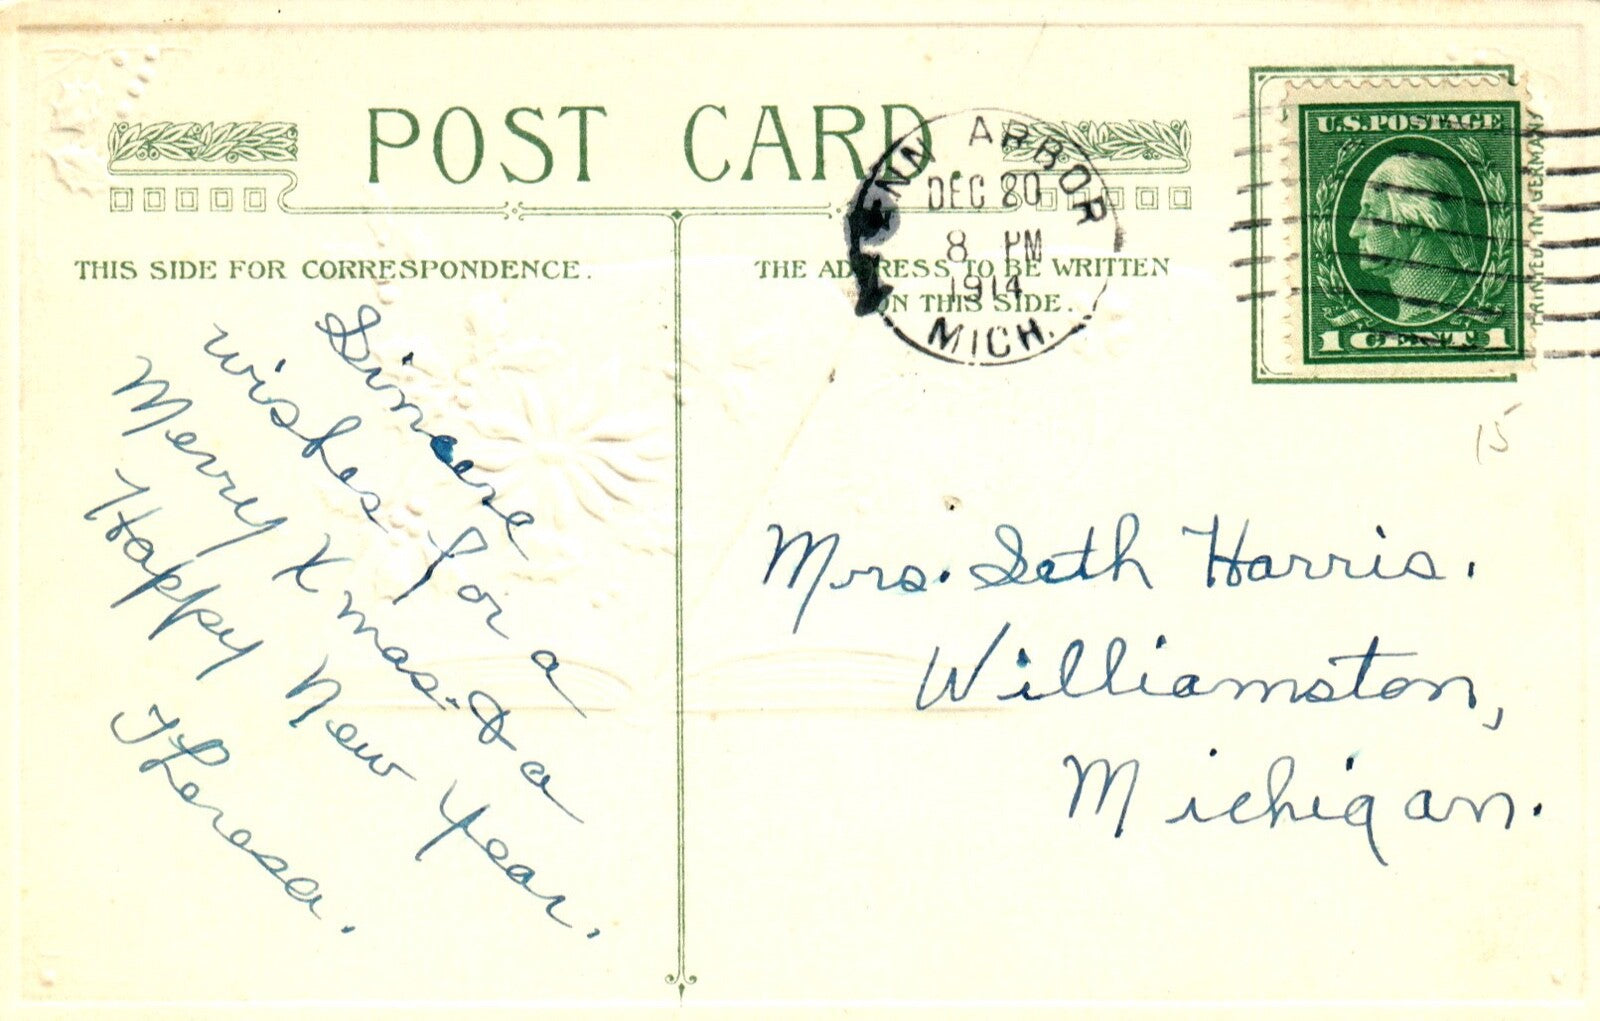 POST CARD
THIS SIDE FOR CORRESPONDENCE.
THE ADDRESS TO BE WRITTEN
ON THIS SIDE.
ANN ARBOR
DEC 20
8 PM
1914
MICH.
U.S.POSTAGE
1 CENT 1
PRINTED IN GERMANY
15
Sincere
wishes for a
Merry Xmas. & a
Happy New Year.
Theresa.
Mrs. Seth Harris.
Williamston,
Michigan.